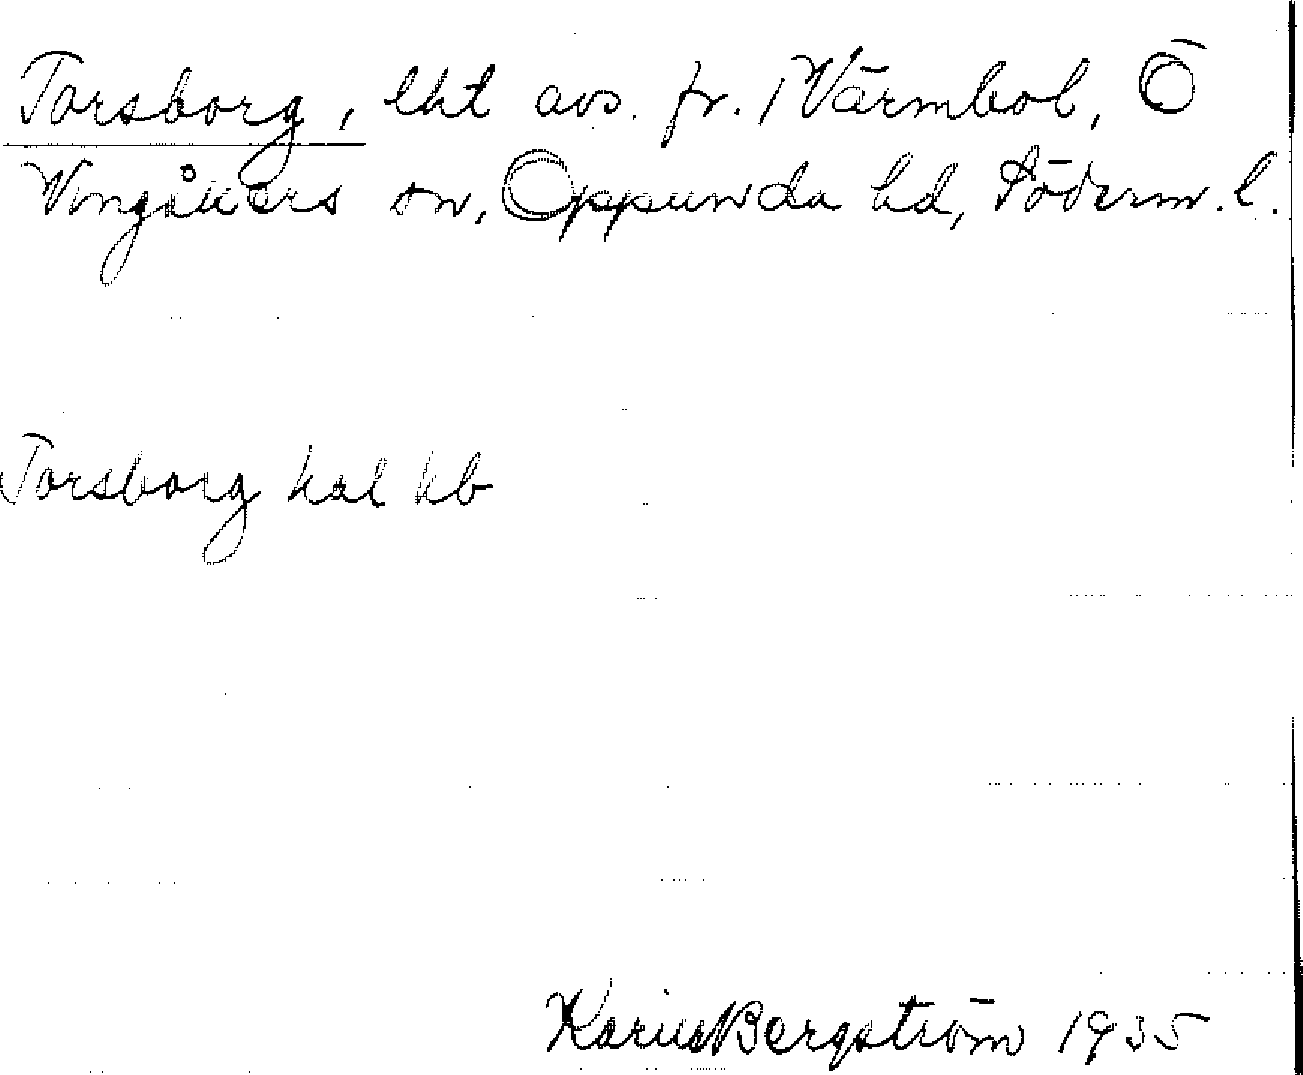 Torsborg, lht avs. fr. 1 Värmbol, Ö
Vingåkers sn, Oppunda hd, Söderm. l.
Torsborg hal kb
Karin Bergström 1935